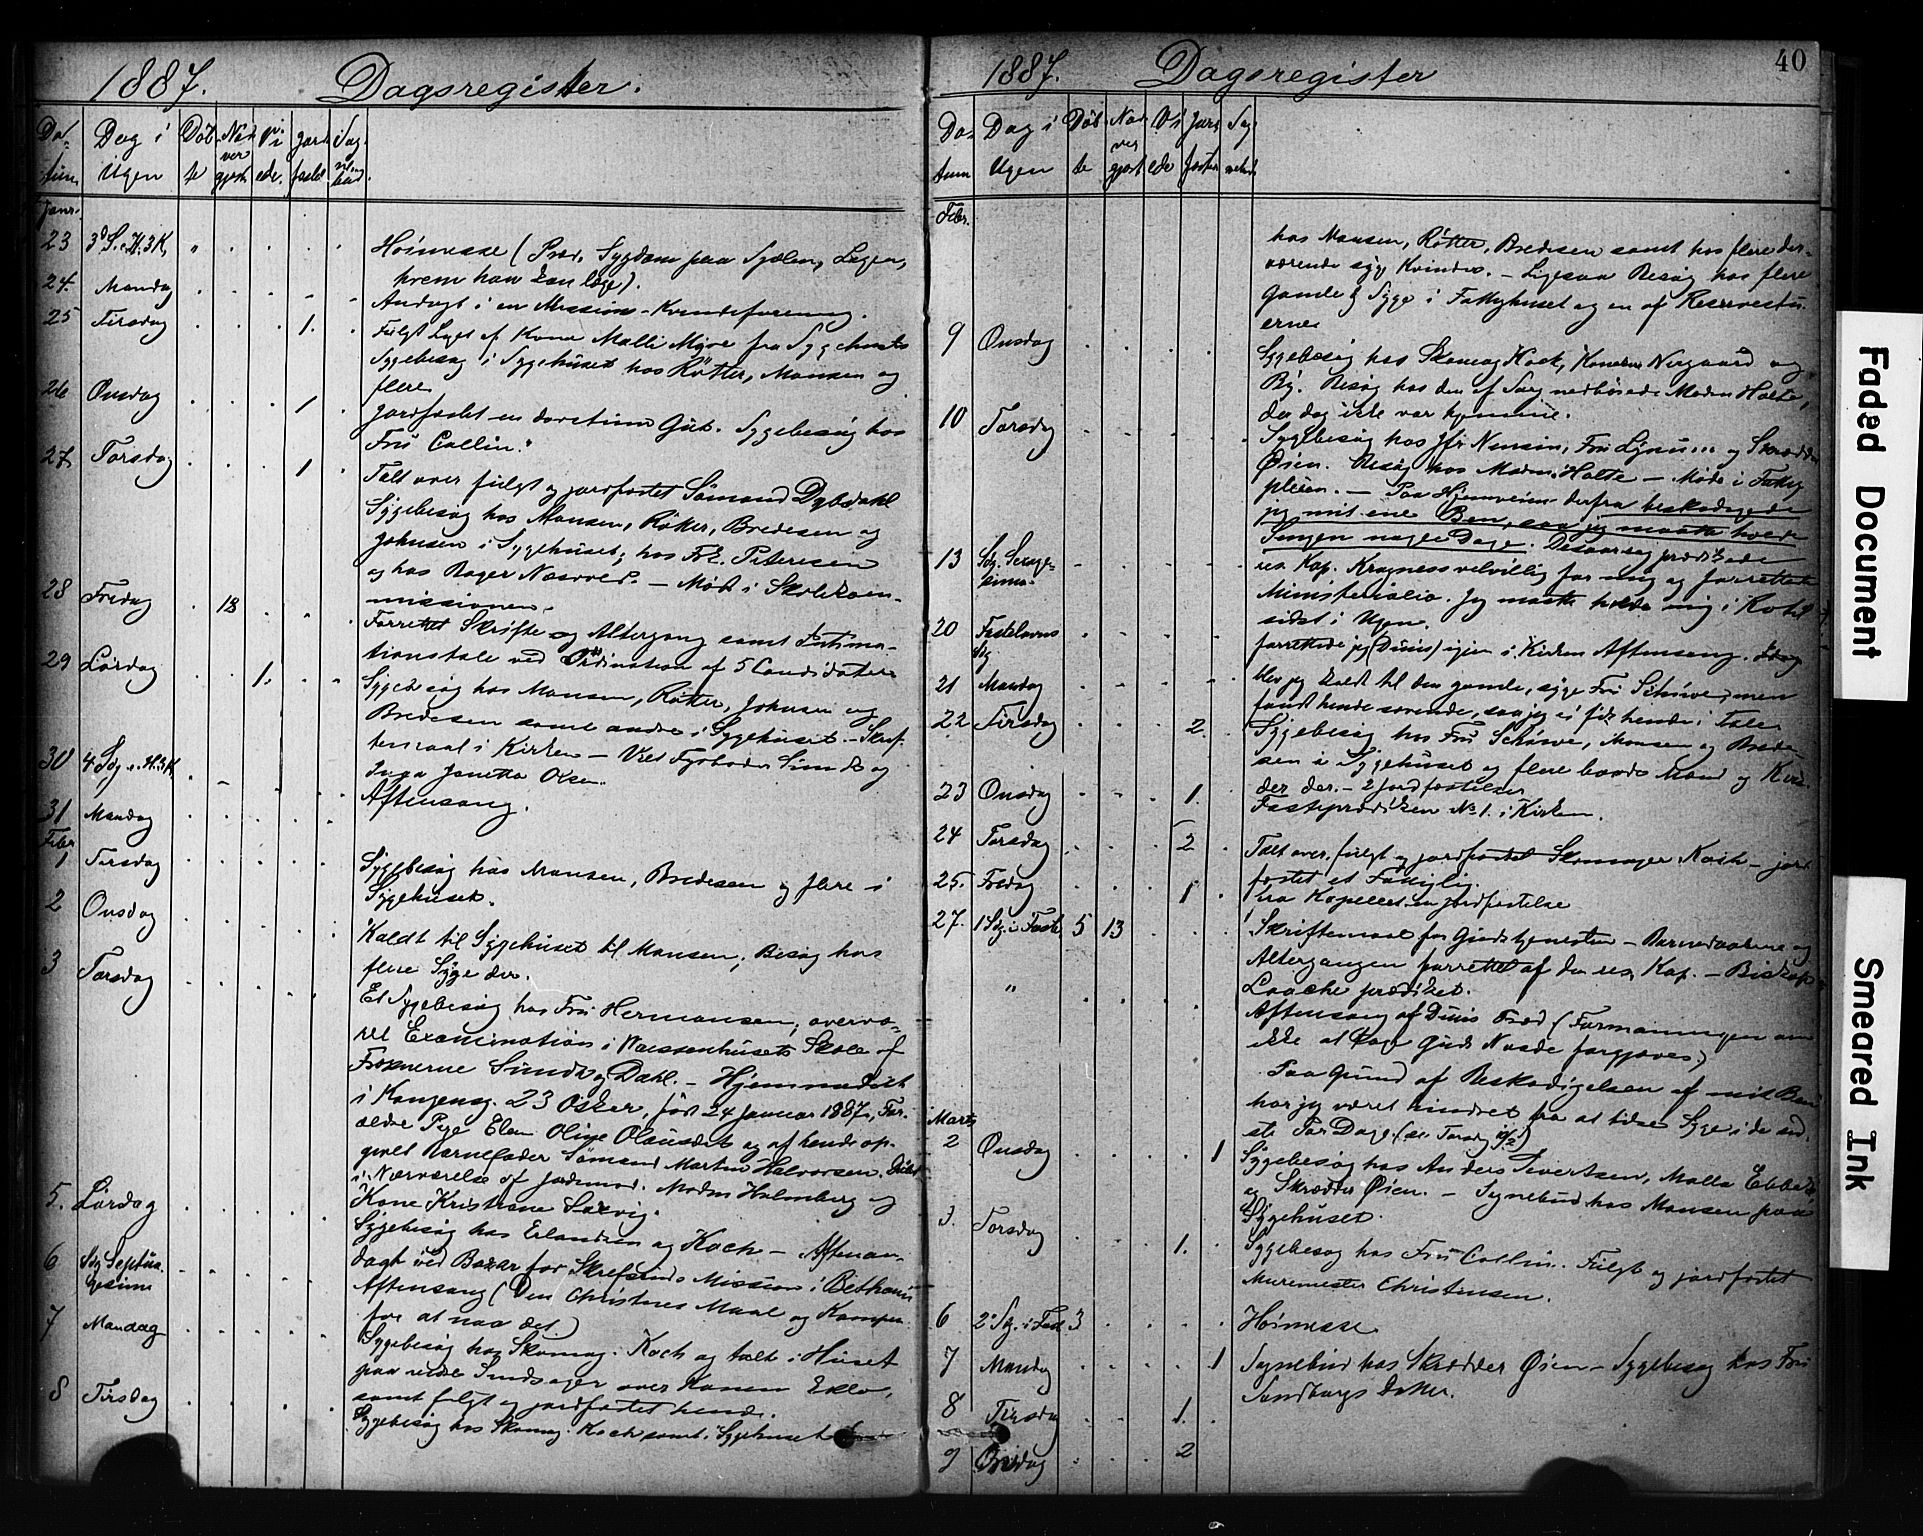 1887. Dagsregister.
Da-
tum
Dag i
Ugen
Døb
te
Nad
ver
gjæst
Vi
ede
Jord
fæsted
Sog
nebud
Janr.
23 3d S. e. H. 3 K.
Høimesse (Præd. Sygdom paa Sjælen, Lægen,
hvem han kan læge).
24. Mandag
Andagt i en Missions-Kvindeforening.
25 Tirsdag 1.
Fulgt Liget af Kone Malli Myre fra Sygehuset
Sygebesøg i Sygehuset hos Røtter, Mansen og
flere
26 Onsdag 1
Jordfæstet en Gut. Sygebesøg hos
Fru Collin.
27 Torsdag 1
Talt over fulgt og jordfæstet Sømand Dybdahl
Sygebesøg hos Mansen, Røtter, Bredesen og
Johnsen i Sygehuset; hos Frk. Petersen
og hos Bager Næsvold. — Møde i Skolekom-
missionen.
28 Fredag 18
Forrettet Skrifte og Altergang samt Intima-
tionstale ved Ordination af 5 Candidater
29 Lørdag 1.
Sygebesøg hos Mansen, Røtter, Johnsen og
Bredesen samt andre i Sygehuset. — Skrif-
temaal i Kirken — Viet Fyrbøder Sund og
Inga Janetta Olsen.
30 4 Sdg. e. H. 3 K.
Aftensang.
31 Mandag
Febr
1 Tirsdag
Sygebesøg hos Mansen, Bredesen og flere i
Sygehuset.
2 Onsdag
Kaldt til Sygehuset til Mansen; Besøg hos
flere Syge der.
3 Torsdag
Et Sygebesøg hos Fru Hermansen; overvæ-
ret Examination i Waisenhusets Skole af
Frøknerne Sund og Dahl. — Hjemmedøbt
i Kongensg. 23 Oskar, født 24 Januar 1887, For-
ældre Pige Elen Oline Olausdat. og af hende op-
givet Barnefader Sømand Martin Halvorsen. Døbt
i Nærværelse af Jordmod. Madm Holmberg og
Kone Kristiane Solvig.
5. Lørdag
Sygebesøg hos Erlandsen og Koch — Aftenan-
dagt ved Bazar for Skrefsruds Mission i Bethania
6 Sdg Septua-
gesima
Aftensang (Den Christnes Maal og Kampen
for at naa det)
7 Mandag
Sygebesøg hos Skomag. Koch og talt i Huset
paa nedre Singsager over Konen Eklo,
samt fulgt og jordfæstet hende.
8 Tirsdag
Sygebesøg hos Skomag. Koch samt i Sygehuset
1887. Dagsregister
40
Da-
tum
Dag i
Ugen
Døb
te
Nad
ver
gjæst
Vi
ede
Jord
fæstede
Sog
nebud
Febr.
hos Mansen, Røtter, Bredesen samt hos flere der-
værende syge Kvinder. — Ligesaa Besøg hos flere
Gamle & Syge i Fattighuset og en af Reservestu-
erne
9 Onsdag
Sygebesøg hos Skomag Koch, Konerne Nergaard og
By. Besøg hos den af Sorg nedbøiede Madm Holte,
der dog ikke var hjemme.
10 Torsdag
Sygebesøg hos Jfr Nensén, Fru og Skrædder
Øien. Besøg hos Madm. Holte — Møde i Fattig
pleien. — Paa Hjemveien derfra beskadigede
jeg mit ene Ben, saa jeg maatte holde
Sengen nogle Dage. Desaarsag prædikede
13 Sdg. Sexage-
sima
res. Kap. Kragness velvillig for mig og forrettede
Ministerialia. Jeg maatte holde mig i Ro til
sidst i Ugen.
20 Fastelavns
Sdg
forrettede jeg (Dinis) igjen i Kirken Aftensang. Idag
21 Mandag
blev jeg kaldt til den gamle, syge Fru Schive, men
fandt hende sovende, saa jeg ei fik hende i Tale
22 Tirsdag 2.
Sygebesøg hos Fru Schive, Mansen og Brede-
sen i Sygehuset og flere baade Mænd og Kvin-
der der. — 2 Jordfæstelser
23 Onsdag 1.
Fasteprædiken № 1. i Kirken.
24 Torsdag 2
Talt over, fulgt og jordfæstet Skomager Koch — jord
fæstet et Fattiglig.
25. Fredag 1
Fra Kapellet en Jordfæstelse
27. 1 Sdg. i Faste 5 13
Skriftemaal før Gudstjenesten — Barnedaabene og
Altergangen forrettet af den res. Kap. — Biskop
Laache prædiket.
"
Aftensang af Dinis Præd (Formaningen om
ikke at tage Guds Naade forgjæves)
Paa Grund af Beskadigelsen af mit Ben
har jeg været hindret fra at tilse Syge i de sid-
ste Par Dage (se Torsdag 10/2)
Marts
2 Onsdag 1
Sygebesøg hos Anders Sivertsen, Malla Ebbe
og Skrædder Øien. — Sognebud hos Mansen paa
Sygehuset.
3. Torsdag 1.
Sygebesøg hos Fru Collin. Fulgt og jordfæstet
Muremester Christensen.
6 2 Sdg. i Fast 3
Høimesse
7 Mandag 1
Sognebud hos Skrædder Øien — Sygebesøg hos Fru
Sandborgs Datter.
8 Tirsdag 1.
9 Onsdag 2
Faded Document
Smeared Ink